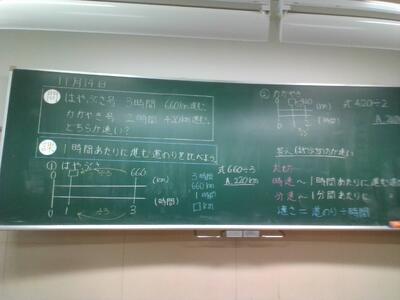 11月14日
問 はやぶさ号 3時間 660km進む
かがやき号 2時間 420km進む
どちらが速い?
課 1時間あたりに進む道のりを比べよう。
① はやぶさ
0 □ 660 (km)
÷3
0 1 3 (時間)
÷3
3時間
660km
1時間
□km
式 660÷3
A. 220km
② かがやき
0 □ 420 (km)
(時間)
式 420÷2
大切
時速〜1時間あたりに進む道
分速〜1分間あたりに
速さ=道のり÷時間